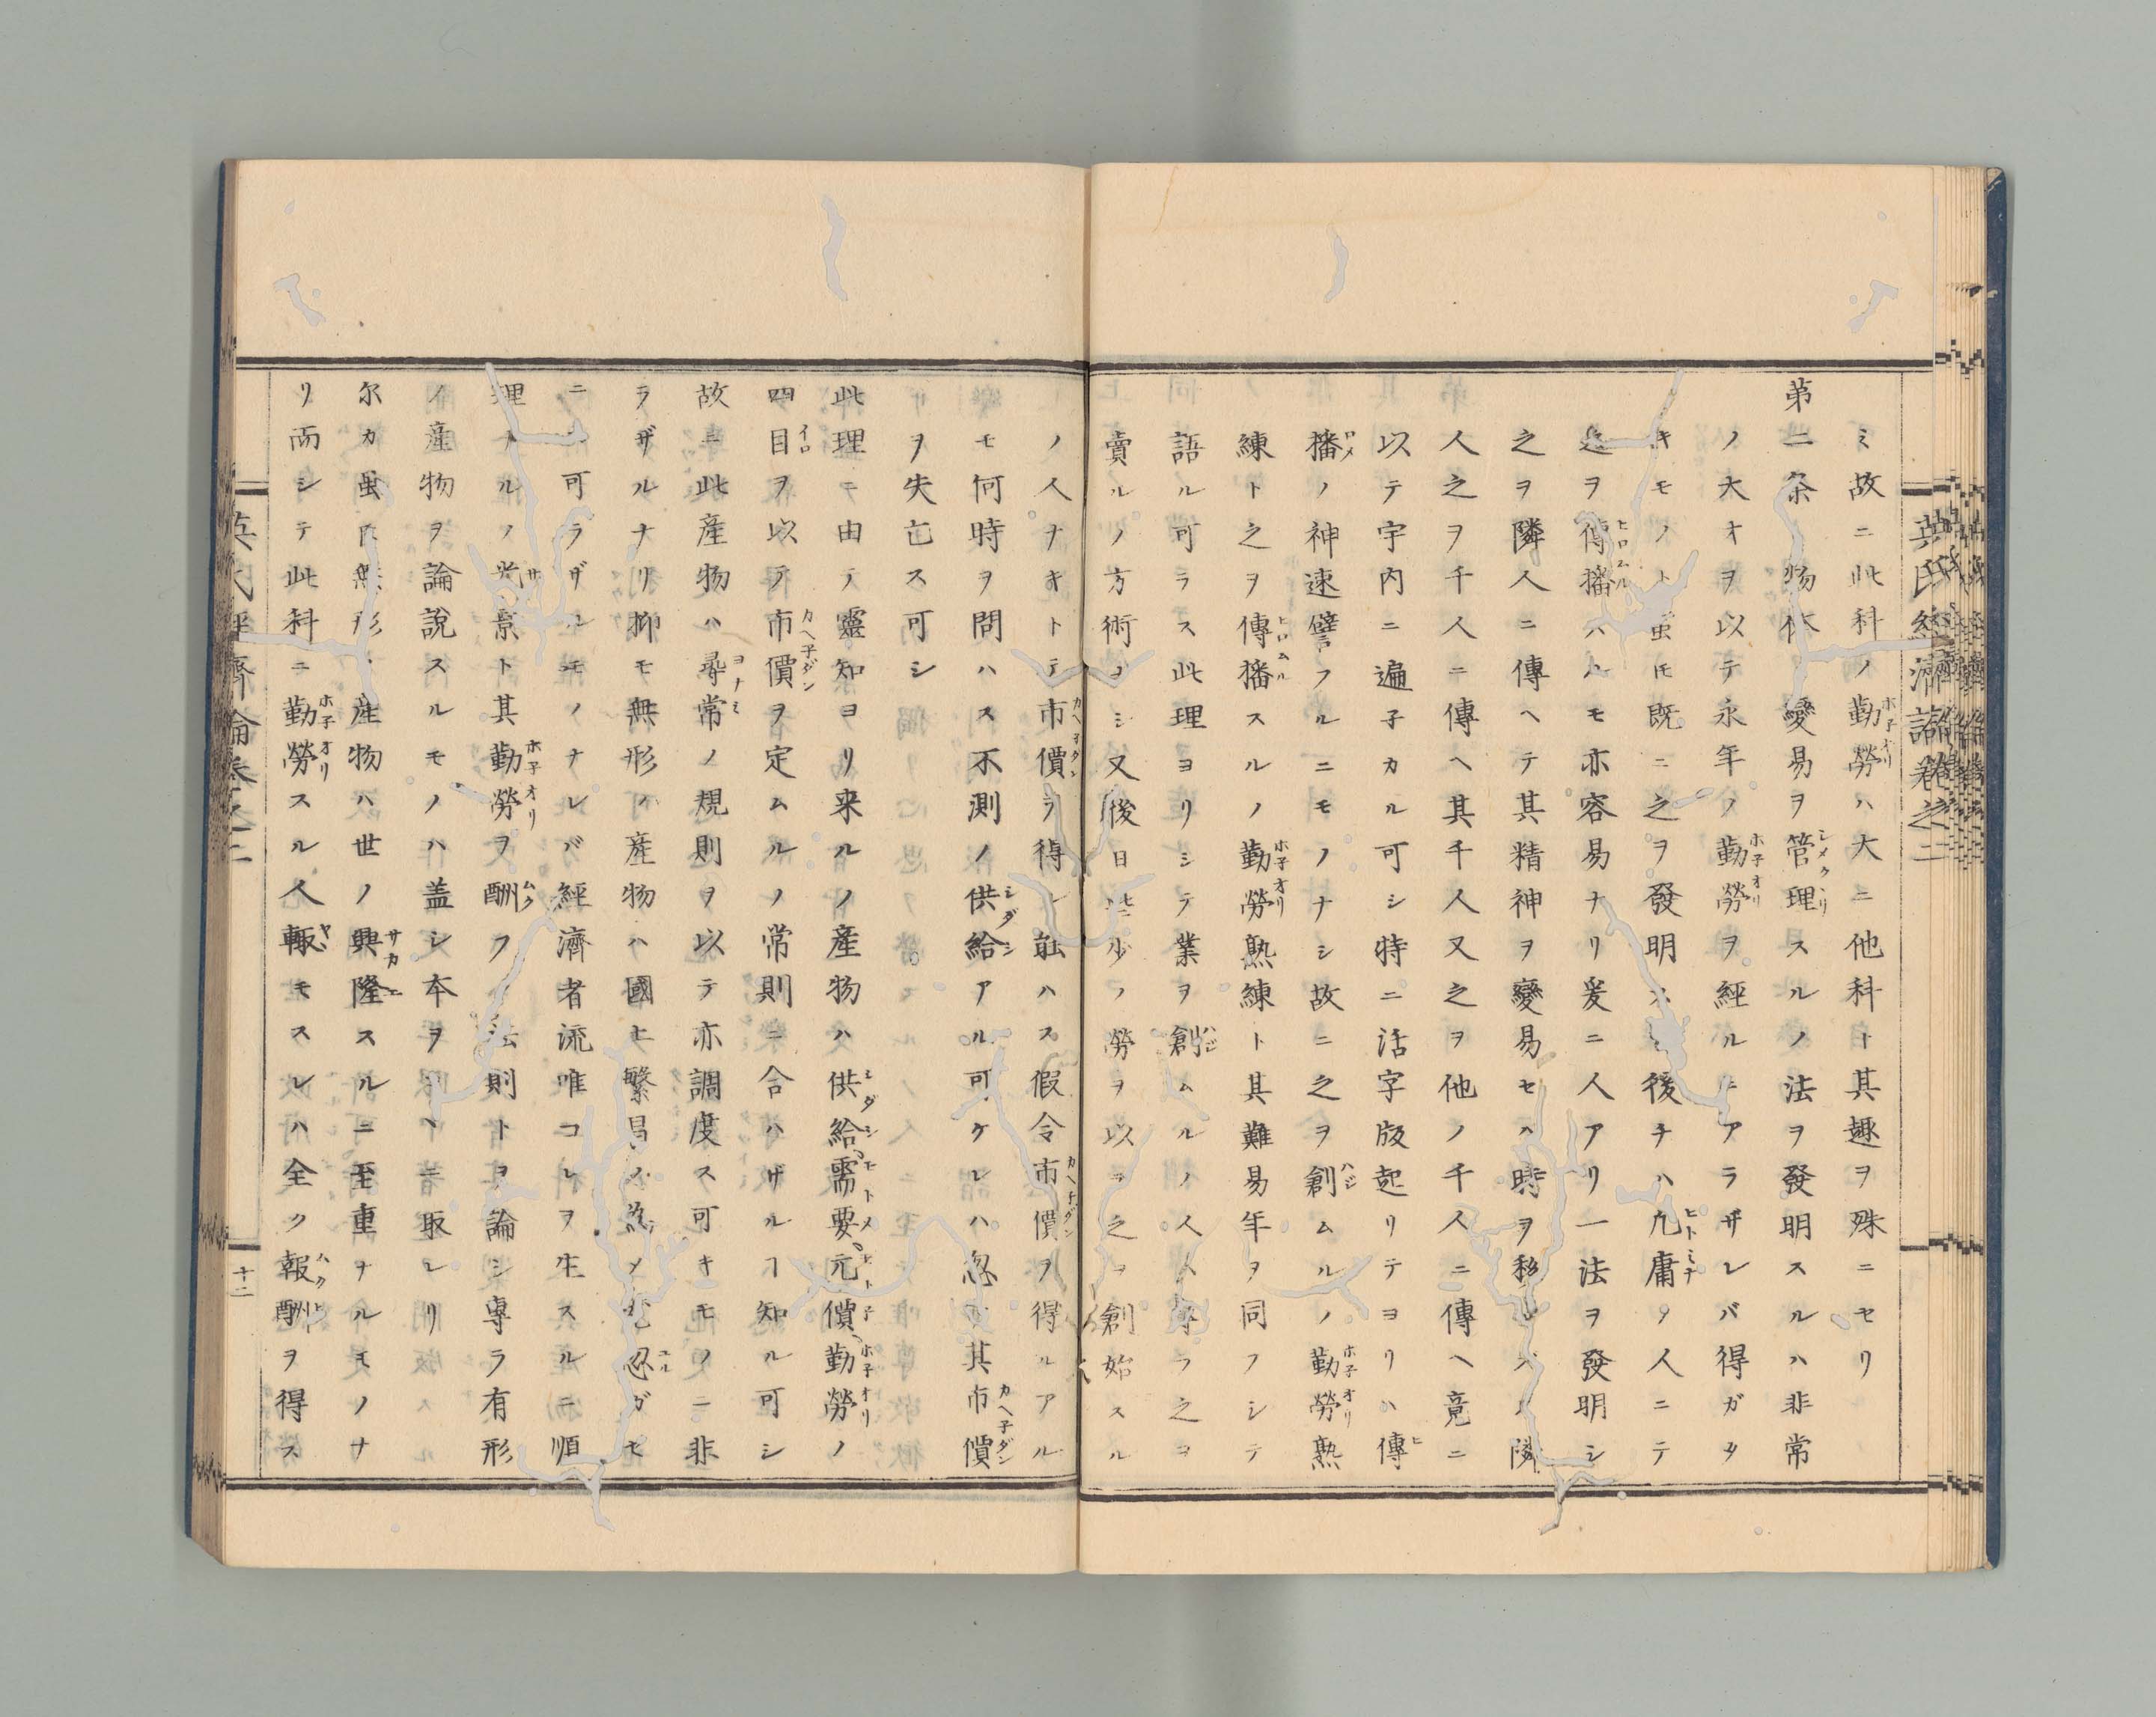 英氏經濟論卷之二
ミ故ニ此科ノ勤勞ハ大ニ他科ト其趣ヲ殊ニセリ
第二条 物体ノ變易ヲ管理スルノ法ヲ發明スルハ非常
ノ大オヲ以テ永年ノ勤勞ヲ經ルニアラザレバ得ガタ
キモノト雖ドモ既ニ之ヲ發明スル後チハ凢庸ノ人ニテ
之ヲ傳播スルモ亦容易ナリ爰ニ人アリ一法ヲ發明シ
之ヲ隣人ニ傳ヘテ其精神ヲ變易セハ時ヲ移サズ隣
人之ヲ千人ニ傳ヘ其千人又之ヲ他ノ千人ニ傳ヘ竟ニ
以テ宇内ニ遍子カル可シ特ニ活字版起リテヨリハ傳
播ノ神速譬フルニモノナシ故ニ之ヲ創ムルノ勤勞熟
練ト之ヲ傳播スルノ勤勞熟練ト其難易年ヲ同フシテ
語ル可ラス此理ヨリシテ業ヲ創ムルノ人専ラ之ヲ
賣ルノ方術ヲシ又後日些少ノ勞ヲ以テ之ヲ創始スル
ノ人ナキトテ市價ヲ得レ能ハス假令市價ヲ得ルアル
モ何時ヲ問ハス不測ノ供給アル可ケレハ忽チ其市價
ヲ失亡ス可シ
此理ニ由テ靈知ヨリ来ルノ産物ハ供給、需要、元價、勤勞ノ
四目ヲ以テ市價ヲ定ムルノ常則ニ合ハザルヿ知ル可シ
故ニ此産物ハ尋常ノ規則ヲ以テ亦調度ス可キモノニ非
ラザルナリ抑モ無形ノ産物ハ國ヒ繁昌ノ為メ忍ガセ
ニ可ラザルモノナレバ經濟者流唯コレヲ生スルニ順
理ナルノ光景ト其勤勞ヲ酬フノ法則トヲ論シ専ラ有形
ノ産物ヲ論說スルモノハ盖シ本ヲ ヘニ取レリ
尔カ虽𪜈無形ノ産物ハ世ノ興隆スルニ至重ナルモノナ
リ而シテ此科ニ勤勞スル人輙モスレハ全ク報酬ヲ得ス
英氏經濟論卷之二
十二